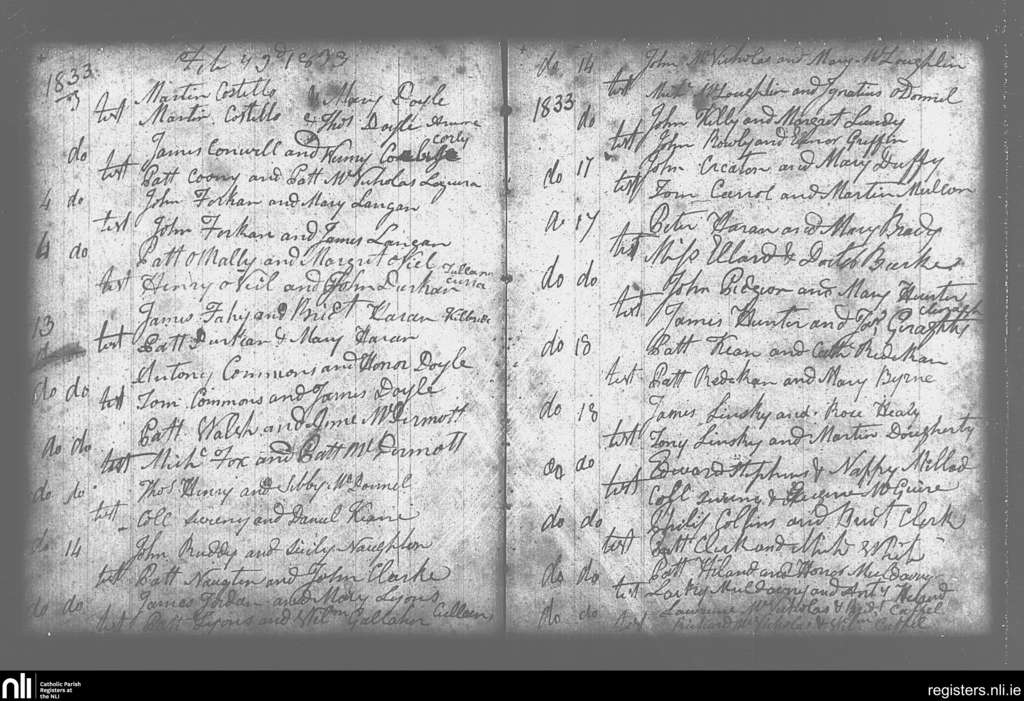 Feb 1833
1833
3 Martin Costello & Mary Doyle
test Martin Costello & Thos Doyle
do James Conwell and
test Patt Coony and Patt McNicholas
4 do John Forkan and Mary Langan
test John Forkan and James Langan
4 do Patt OMally and Margret oNiel
test Henry oNeil and John Durkan
13 James Fahy and Bridt Haran
test Patt Durkan & Mary Haran
do do Antony Commons and Honor Doyle
test Tom Commons and James Doyle
do do Patt Walsh and McDermott
test Michl Fox and Patt McDermott
do do Thos Henry and Sibby McDonnel
test Coll Sweeny and Daniel Keane
do 14 John Ruddy and Sicily Naughton
test Patt Naugten and John Clarke
do do James Jordan and Mary Lyons
test Patt Lyons and Gallaher
do 14 John McNicholas and Mary McLoughlin
test Michl McLoughlin and Ignatius oDonnel
1833 do John Kelly and Margret Lundy
test John Rowly and Elenor Griffin
do 17 John Creaton and Mary Duffy
test Tom Carrol and Martin Mullon
17 Peter Haran and Mary Brady
test Miss Ellard & Burke
do do John Pidgeon and Mary Hunter
test James Hunter and Geraghty
do 18 Patt Kean and Cath Redekan
test Patt Redekan and Mary Byrne
do 18 James Linsky and Rose Healy
test Tony Linsky and Martin Dougherty
do do Edward Stephens & Nappy
test Coll Sweeny & McGuire
do do Philip Collins and Bridt Clerk
test Patt Clerk and
do do Patt Hiland and Honor
test and Hiland
do do Laurence McNicholas & Bridt
test Richard McNicholas &
nli
Catholic Parish
Registers at
the NLI
registers.nli.ie